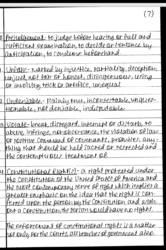 (7)
Prejudgement: to judge before hearing or full and
sufficient examination, to decide or sentence by
anticipation, to condemn beforehand.
Unfair: marked by injustice, partiality, deception,
unjust, not fair or honest, disingenuous, using
or involving trick or artifice, unequal
Undeniable: Plainly true, incontestable, unques-
tionable, not deniable, indisputable.
Violate: break, disregard, interrupt or disturb, to
abuse, infringe, non observance, the violation of law
or positive command or covenants, promises, any
thing that should be held sacred or respected and
the contemptuous treatment of.
Constitutional Right(s): a right protected under
the Constitution of the United States of America and
the most contemporary sense of right which implies a
greater emphasis on the idea that the right is con-
ferred upon the person by the Constitution, and with-
out a Constitution, the person would have no rights.
The enforcement of constitutional rights is a matter
not only for the courts, all branches of government alike